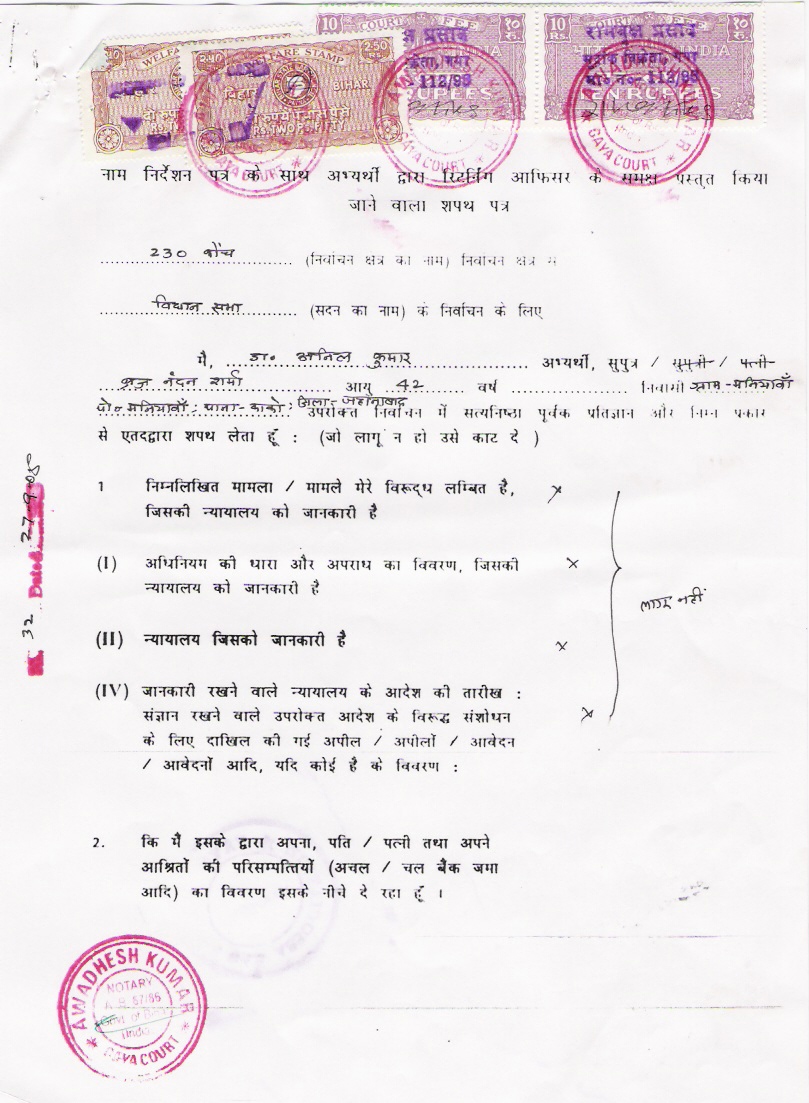 WELFA
WELFARE STAMP
2.50
बिहार
BIHAR
RS. TWO FS. FIFTY
10 COURT FEE १०
INDIA
RUPEES
10 COURT FEE १०
Rs. भारत INDIA रु.
रामवृक्ष प्रसाद
112/98
TEN RUPEES
AWADHESH KUMAR
GAYA COURT
नाम निर्देशन पत्र के साथ अभ्यर्थी द्वारा रिटर्निंग आफिसर के समक्ष प्रस्तुत किया
जाने वाला शपथ पत्र
230 कोंच (निर्वाचन क्षेत्र का नाम) निर्वाचन क्षेत्र से
विधान सभा (सदन का नाम) के निर्वाचन के लिए
मै, डा॰ अनिल कुमार अभ्यर्थी, सुपुत्र / सुपुत्री / पत्नी
ब्रज नंदन शर्मा आयु 42 वर्ष निवासी ग्राम-मनियावाँ
पो॰ मनियावाँ; थाना-काको; जिला-जहानाबाद उपरोक्त निर्वाचन में सत्यनिष्ठा पूर्वक प्रतिज्ञान और निम्न प्रकार
से एतदद्वारा शपथ लेता हूँ : (जो लागू न हो उसे काट दे )
1 निम्नलिखित मामला / मामले मेरे विरूद्ध लम्बित है, ×
जिसकी न्यायालय को जानकारी है
(I) अधिनियम की धारा और अपराध का विवरण, जिसकी ×
न्यायालय को जानकारी है
लागू नहीं
(II) न्यायालय जिसको जानकारी है ×
(IV) जानकारी रखने वाले न्यायालय के आदेश की तारीख :
संज्ञान रखने वाले उपरोक्त आदेश के विरूद्ध संशोधन ×
के लिए दाखिल की गई अपील / अपीलों / आवेदन
/ आवेदनों आदि, यदि कोई है के विवरण :
2. कि मैं इसके द्वारा अपना, पति / पत्नी तथा अपने
आश्रितों की परिसम्पत्तियों (अचल / चल बैंक जमा
आदि) का विवरण इसके नीचे दे रहा हूँ ।
32 Dated 27-9-05
AWADHESH KUMAR
NOTARY
India
GAYA COURT